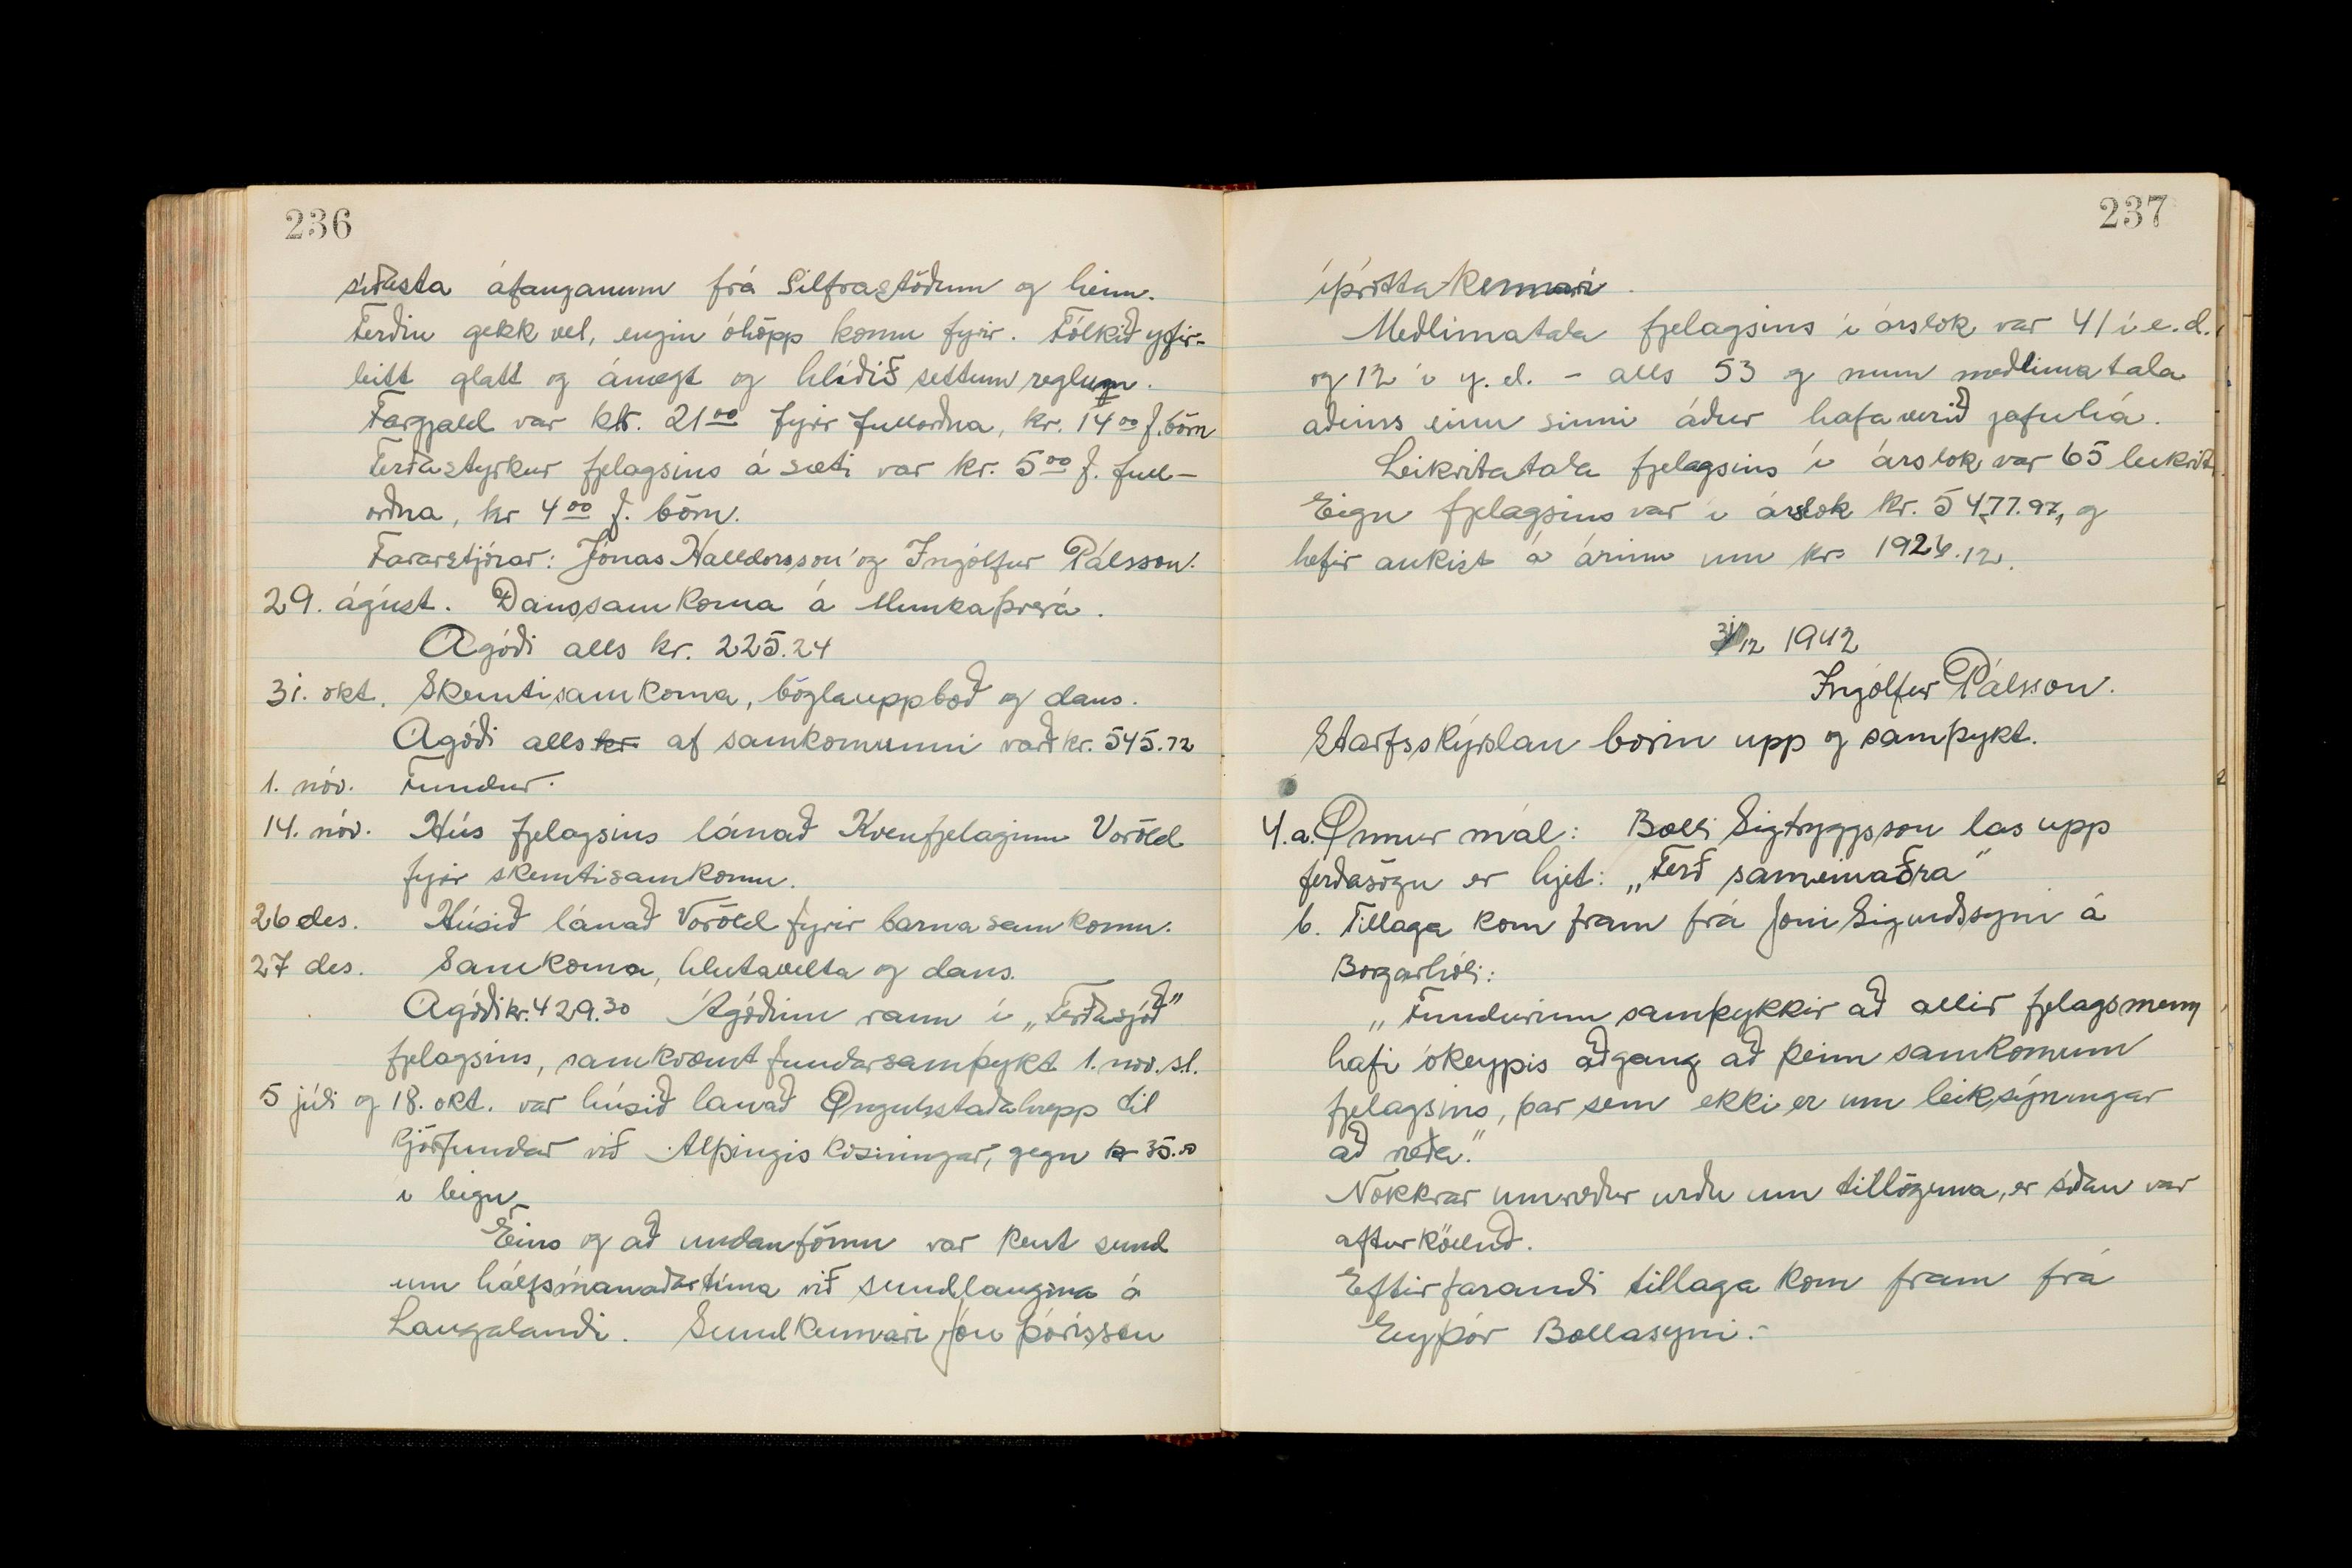 236
síðasta áfanganum frá Silfrastöðum og heim.
Ferðin gekk vel, engin óhöpp komu fyrir. Fólkið yfir-
leitt glatt og ánægt og hlíðið settum reglum.
Fargjald var kr. 21 00 fyrir fullorðna, kr. 14 00 f. börn
Ferðastyrkur fjelagsins á sæti var kr. 5 00 f. full-
orðna, kr 4 00 f. börn.
Fararstjórar: Jónas Halldorsson og Ingólfur Pálsson.
29. ágúst. Danssamkoma á Munkaþverá.
Ágóði alls kr. 225.24
31. okt. Skemtisamkoma, bögglauppboð og dans.
Ágóði alls kr. af samkomunni varð kr. 545.72
1. nóv. Fundur.
14. nóv. Hús fjelagsins lánað Kvenfjelaginu Voröld
fyrir skemtisamkomu.
26 des. Húsið lánað Voröld fyrir barnasamkomu.
27 des. Samkoma, hlutavelta og dans.
Ágóði kr. 429.30 Ágóðinn rann í „Ferðasjóð"
fjelagsins, samkvæmt fundarsamþykt 1. nóv. s.l.
5 júli og 18. okt. var húsið lánað Öngulsstaðahrepp til
kjörfundar við Alþingiskosningar, gegn kr 35.00
í leigu.
Eins og að undanförnu var kent sund
um hálfsmánaðartíma við sundlaugina á
Laugalandi. Sundkennari Jón Þórisson
237
íþróttakennari.
Meðlimatala fjelagsins í árslok var 41 í e.d.
og 12 í y.d. - alls 53 og mun meðlimatala
aðeins einu sinni áður hafa verið jafnhá.
Leikritatala fjelagsins í árslok var 65 leikrit.
Eign fjelagsins var í árslok kr. 5477.97, og
hefir aukist á árinu um kr. 1926.12.
31/12 1942
Ingólfur Pálsson.
Starfsskýrslan borin upp og samþykt.
4.a. Önnur mál: Bolli Sigtryggsson las upp
ferðasögu er hjet: „Ferð sameinaðra"
b. Tillaga kom fram frá Jóni Sigurðssyni á
Borgarhóli:
„Fundurinn samþykkir að allir fjelagsmenn
hafi ókeypis aðgang að þeim samkomum
fjelagsins, þar sem ekki er um leiksýningar
að ræða."
Nokkrar umræður urðu um tillöguna, er síðan var
afturkölluð.
Eftirfarandi tillaga kom fram frá
Eyþór Bollasyni:-